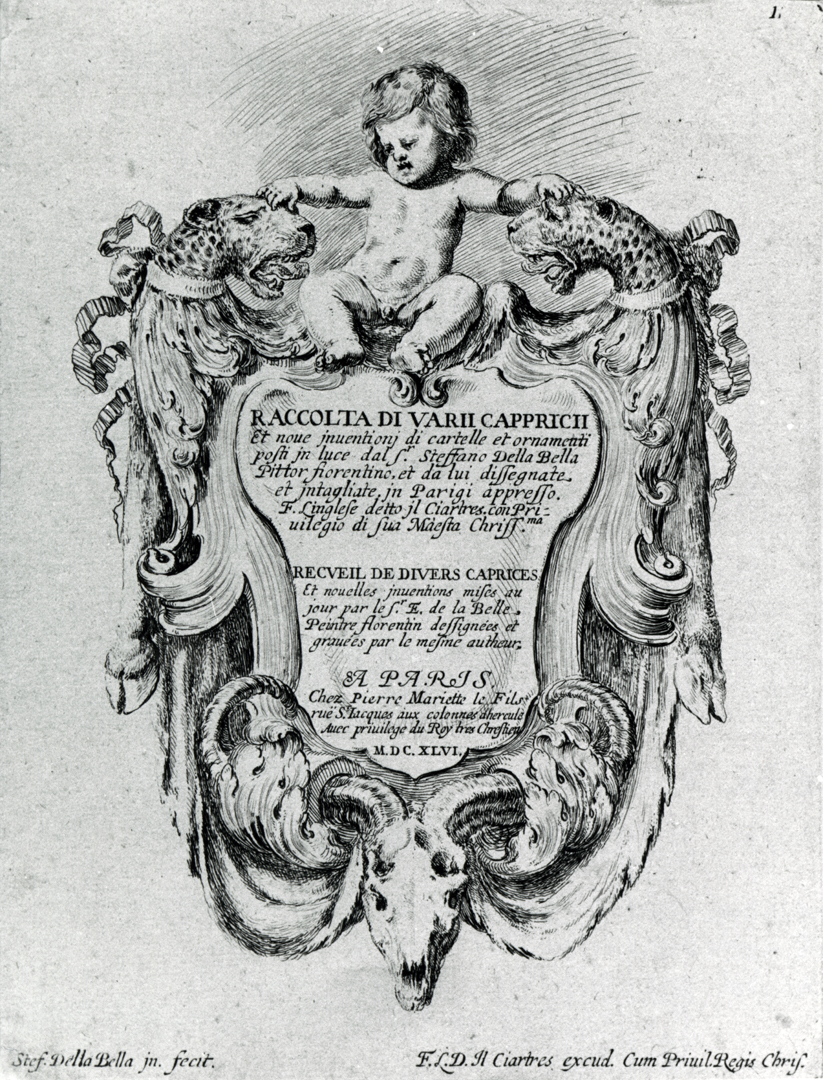 1.
RACCOLTA DI VARII CAPPRICII
Et noue jnuentionj di cartelle et ornamenti
posti jn luce dal Sr. Steffano Della Bella
Pittor fiorentino, et da lui dissegnate
et jntagliate, jn Parigi appresso.
F. L'inglese detto jl Ciartres. con Pri-
uilegio di sua Maesta Chriss.ma
RECVEIL DE DIVERS CAPRICES
Et nouelles jnuentions mises au
jour par le Sr. E. de la Belle
Peintre florentin dessignées et
grauées par le mesme autheur,
A PARIS
Chez Pierre Mariette le Fils
ruë St. Iacques aux colonnes d'hercule
Auec priuilege du Roy tres Chrestien
M.DC.XLVI.
Stef. Della Bella jn. fecit.
F.L.D. Il Ciartres excud. Cum Priuil. Regis Chris.